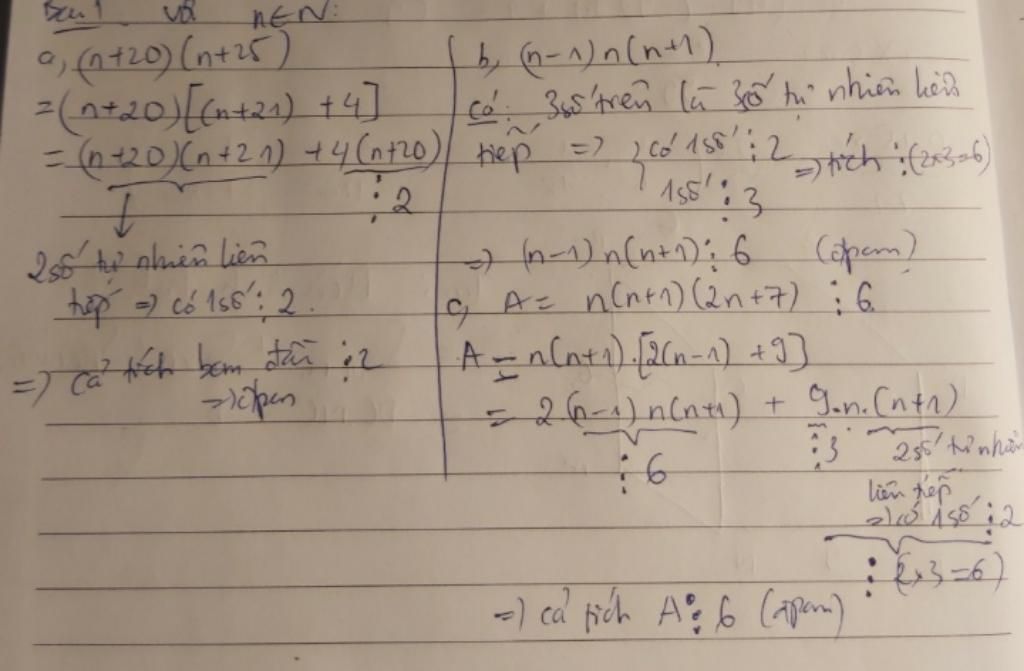 Bài 1 với n∈N:
a, (n+20)(n+25)
=(n+20)[(n+21) +4]
= (n+20)(n+21) +4(n+20)
⋮ 2
2 số tự nhiên liên
tiếp => có 1 số ⋮ 2.
=> cả tích ban đầu ⋮ 2
=> đpcm
b, (n-1)n(n+1)
Có: 3 số trên là 3 số tự nhiên liên
tiếp => có 1 số ⋮ 2 => tích ⋮ (2x3=6)
1 số ⋮ 3
=> (n-1)n(n+1) ⋮ 6 (đpcm)
c, A = n(n+1)(2n+7) ⋮ 6.
A = n(n+1).[2(n-1) +9]
= 2.(n-1)n(n+1) + 9.n.(n+1)
⋮ 6 ⋮ 3 2 số tự nhiên
liên tiếp
=> có 1 số ⋮ 2
⋮ (2x3=6)
=> cả tích A ⋮ 6 (đpcm)